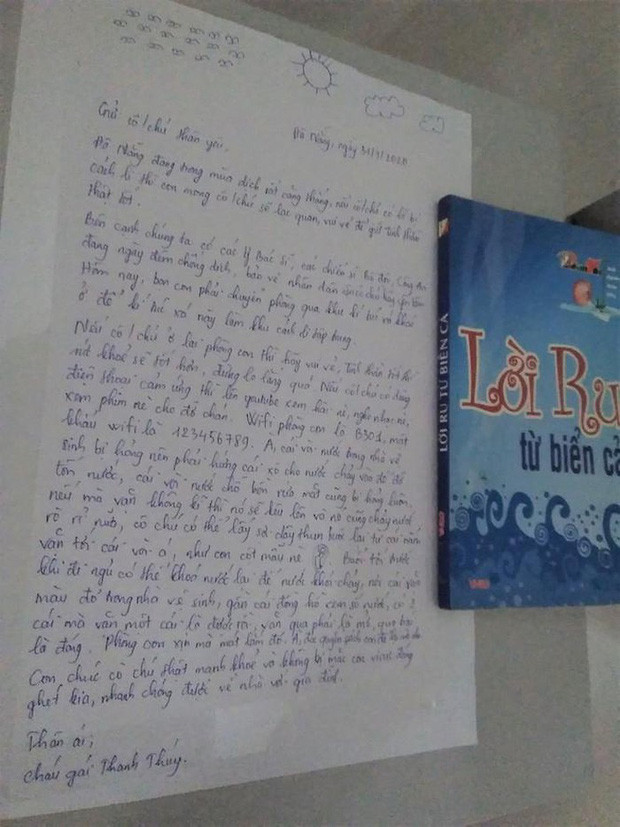 Đà Nẵng, ngày 31/7/2020
Gửi cô/chú thân yêu.
Đà Nẵng đang trong mùa dịch rất căng thẳng, nếu cô/chú có lỡ bị
cách li thì con mong cô/chú sẽ lạc quan, vui vẻ để giữ tinh thần
thật tốt.
Bên cạnh chúng ta có các Y Bác sĩ, các chiến sĩ Bộ đội, Công an
đang ngày đêm chống dịch, bảo vệ nhân dân
Hôm nay, bọn con phải chuyển phòng qua khu kí túc xá khác
ở để kí túc xá này làm khu cách li tập trung.
Nếu cô/chú ở lại phòng con thì hãy vui vẻ, tinh thần tốt thì
sức khoẻ sẽ tốt hơn, đừng lo lắng quá! Nếu cô/chú có dùng
điện thoại cảm ứng thì lên youtube xem hài nè, nghe nhạc nè,
xem phim nè cho đỡ chán. Wifi phòng con là B301, mật
khẩu wifi là 123456789. À, cái vòi nước trong nhà vệ
sinh bị hỏng nên phải hứng cái xô cho nước chảy vào đó để
tốn nước, cái vòi nước chỗ bồn rửa mặt cũng bị hỏng luôn,
nếu mà vặn không kĩ thì nó sẽ lung lên và nó cũng chảy nước
rò rỉ nữa, cô chú có thể lấy sợi dây thun buộc lại từ cái
vặn tới cái vòi ạ, như con cột mẫu nè Buổi tối trước
khi đi ngủ có thể khoá nước lại để nước khỏi chảy, nó cái van
màu đỏ trong nhà vệ sinh, gần cái đồng hồ xem số nước, có 2
cái mà vặn một cái là được rồi, vặn qua phải là mở, qua trái
là đóng. Phòng con xịn mà mát lắm đó. À,
Con chúc cô chú thật mạnh khoẻ và không bị mắc con virus đáng
ghét kia, nhanh chóng được về nhà với gia đình.
Thân ái,
Cháu gái Thanh Thúy.
LỜI RU TỪ BIỂN CẢ
LỜI RU
từ biển cả